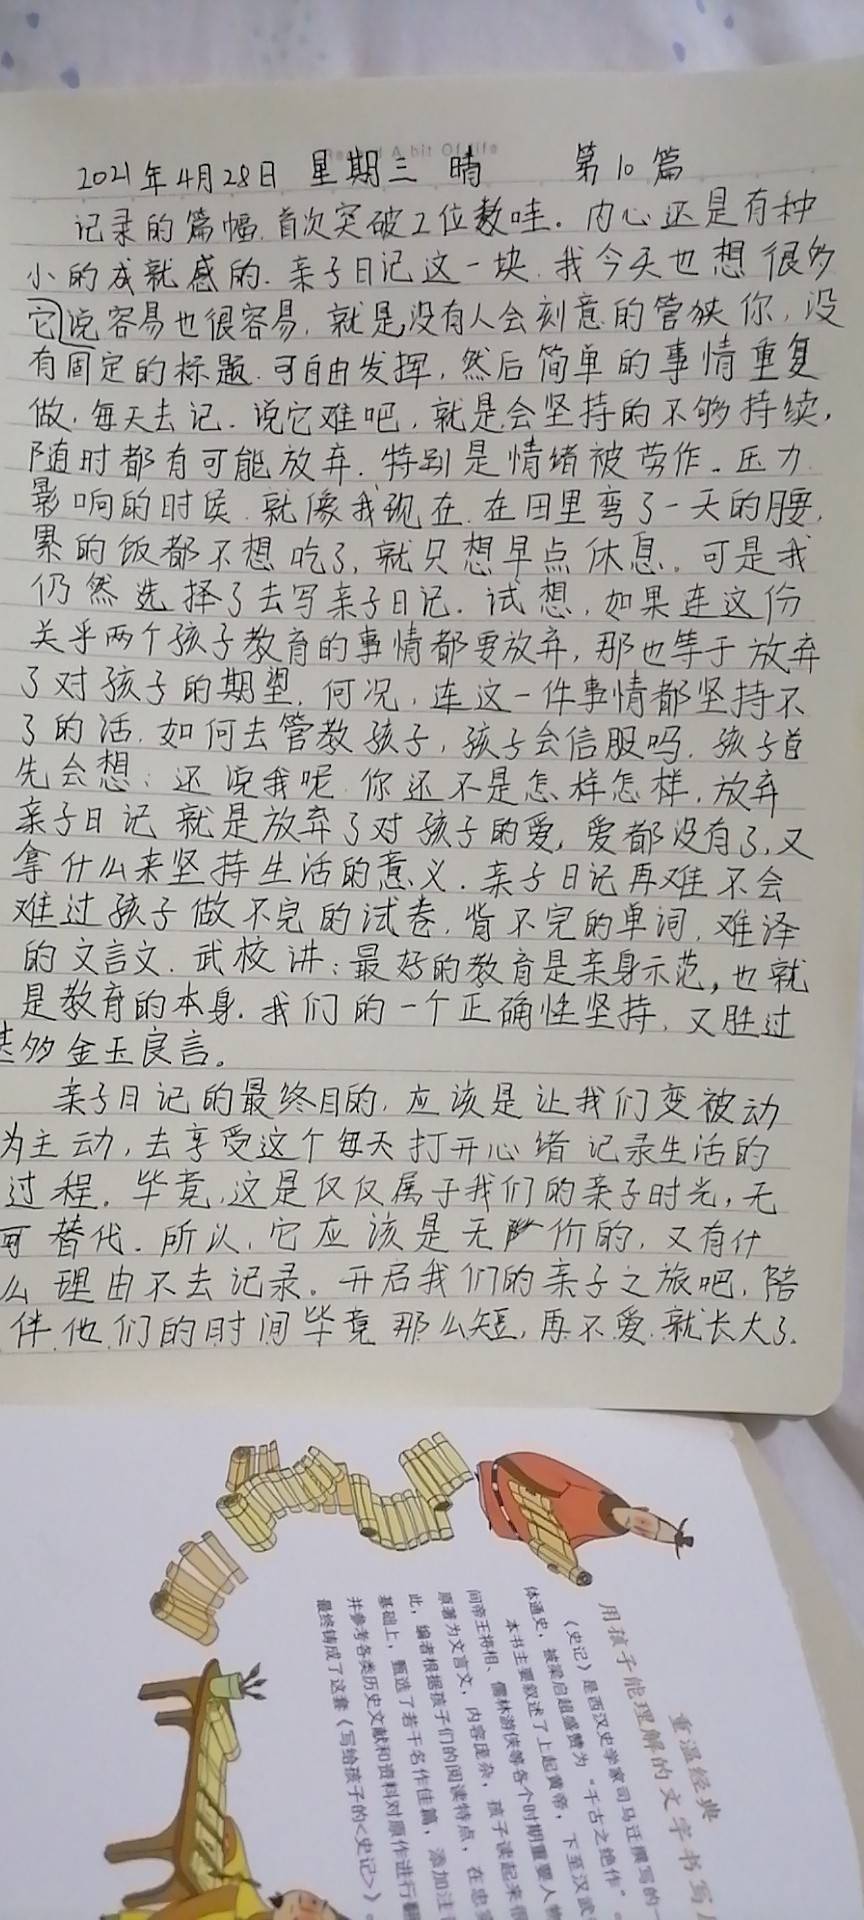 2021年4月28日 星期三 晴 第10篇
记录的篇幅.首次突破2位数哇.内心还是有种
小的成就感的.亲子日记这一块.我今天也想很多
它说容易也很容易.就是,没有人会刻意的管束你,没
有固定的标题.可自由发挥,然后简单的事情重复
做.每天去记.说它难吧,就是会坚持的不够持续,
随时都有可能放弃.特别是情绪被劳作.压力
影响的时侯.就像我现在.在田里弯了一天的腰,
累的饭都不想吃了,就只想早点休息.可是我
仍然选择了去写亲子日记.试想,如果连这份
关乎两个孩子教育的事情都要放弃,那也等于放弃
了对孩子的期望.何况,连这一件事情都坚持不
了的活.如何去管教孩子,孩子会信服吗.孩子首
先会想:还说我呢.你还不是怎样怎样,放弃
亲子日记就是放弃了对孩子的爱,爱都没有了,又
拿什么来坚持生活的意义.亲子日记再难不会
难过孩子做不完的试卷.背不完的单词,难泽
的文言文.武校讲:最好的教育是亲身示范,也就
是教育的本身.我们的一个正确性坚持,又胜过
甚多金玉良言。
亲子日记的最终目的,应该是让我们变被动
为主动,去享受这个每天打开心绪记录生活的
过程.毕竟,这是仅仅属于我们的亲子时光,无
可替代.所以,它应该是无价的,又有什
么理由不去记录。开启我们的亲子之旅吧,陪
伴他们的时间毕竟那么短,再不爱.就长大了.
重温经典
用孩子能理解的文字书写
《史记》是西汉史学家司马迁撰写的一
体通史，被梁启超盛赞为“千古之绝作”。
本书主要叙述了上起黄帝，下至汉武
间帝王将相、儒林游侠等各个时期重要人物
原著为文言文，内容庞杂，孩子读起来很
此，编者根据孩子们的阅读特点，在忠实
基础上，甄选了若干名作佳篇，添加注
并参考各类历史文献和资料对原作进行翻
最终铸成了这套《写给孩子的<史记>》。